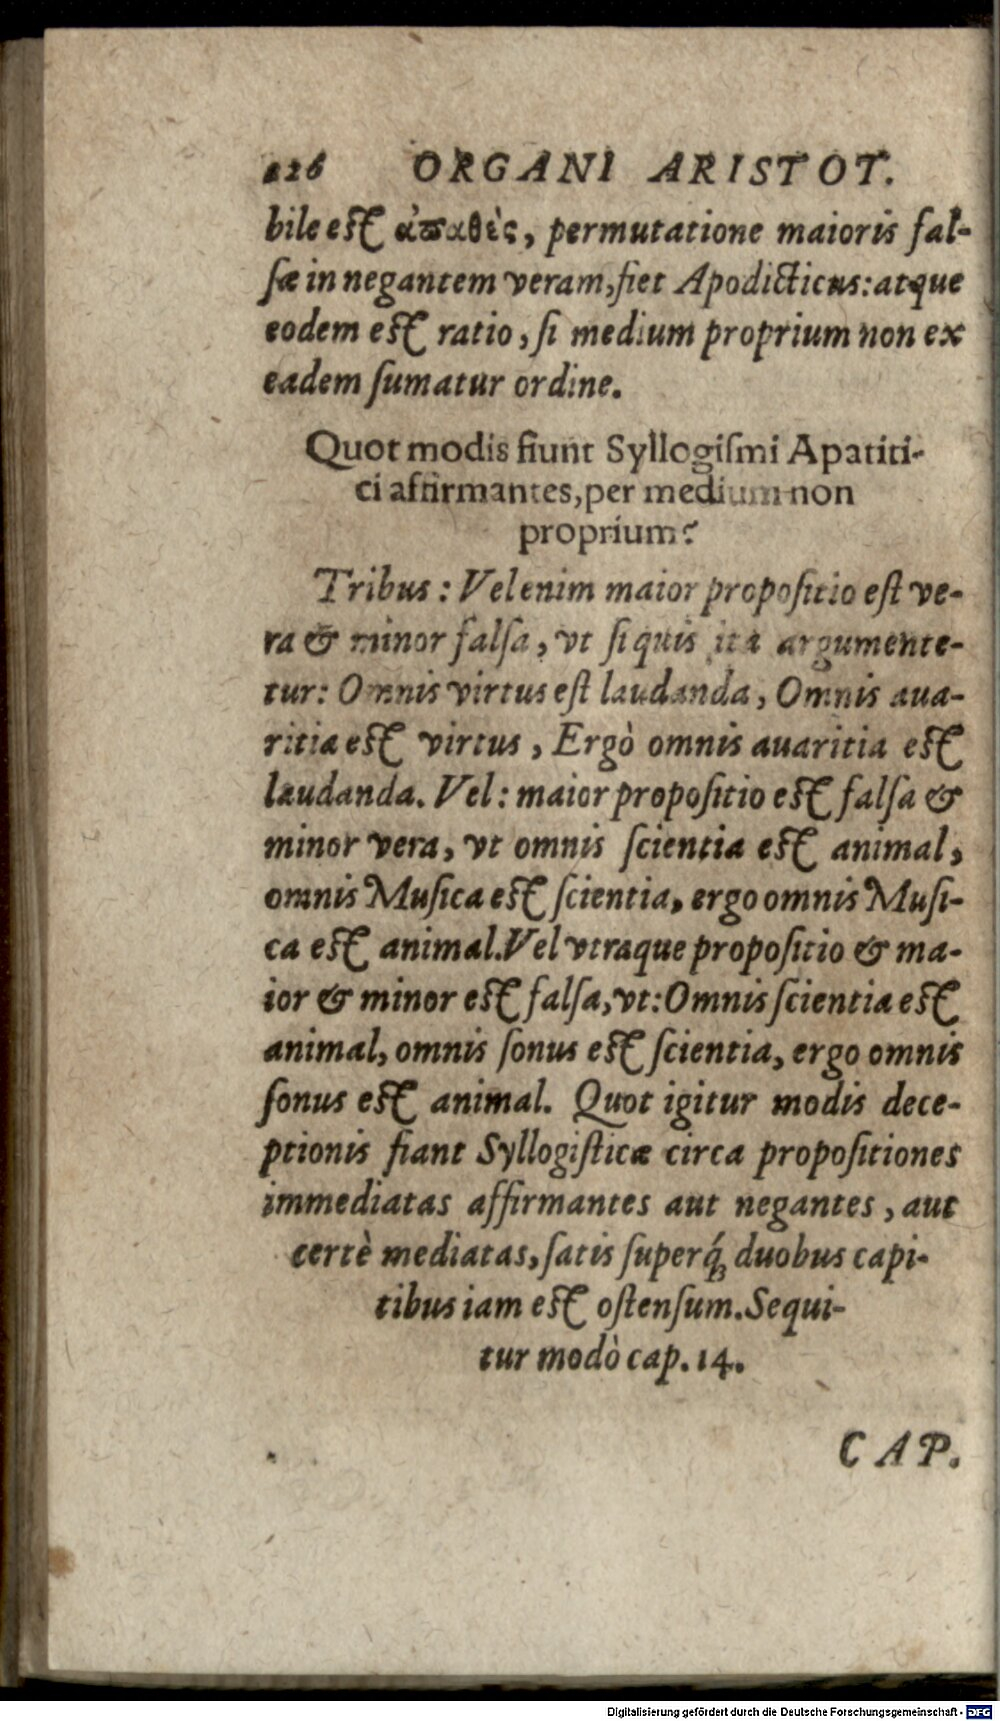 226 ORGANI ARISTOT.
bile est ἀπαθὲς, permutatione maioris fal-
sæ in negantem veram, fiet Apodicticus: atque
eodem est ratio, si medium proprium non ex
eadem sumatur ordine.
Quot modis fiunt Syllogiſmi Apatiti-
ci affirmantes, per medium non
proprium?
Tribus: Vel enim maior propoſitio eſt ve-
ra & minor falſa, vt ſi quis ita argumente-
tur: Omnis virtus eſt laudanda, Omnis aua-
ritia eſt virtus, Ergò omnis auaritia eſt
laudanda. Vel: maior propoſitio eſt falſa &
minor vera, vt omnis ſcientia eſt animal,
omnis Muſica eſt ſcientia, ergo omnis Muſi-
ca eſt animal. Vel vtraque propoſitio & ma-
ior & minor eſt falſa, vt: Omnis ſcientia eſt
animal, omnis ſonus eſt ſcientia, ergo omnis
ſonus eſt animal. Quot igitur modis dece-
ptionis fiant Syllogiſticæ circa propoſitiones
immediatas affirmantes aut negantes, aut
certè mediatas, ſatis ſuperq́; duobus capi-
tibus iam eſt oſtenſum. Sequi-
tur modò cap. 14.
CAP.
Digitalisierung gefördert durch die Deutsche Forschungsgemeinschaft - DFG